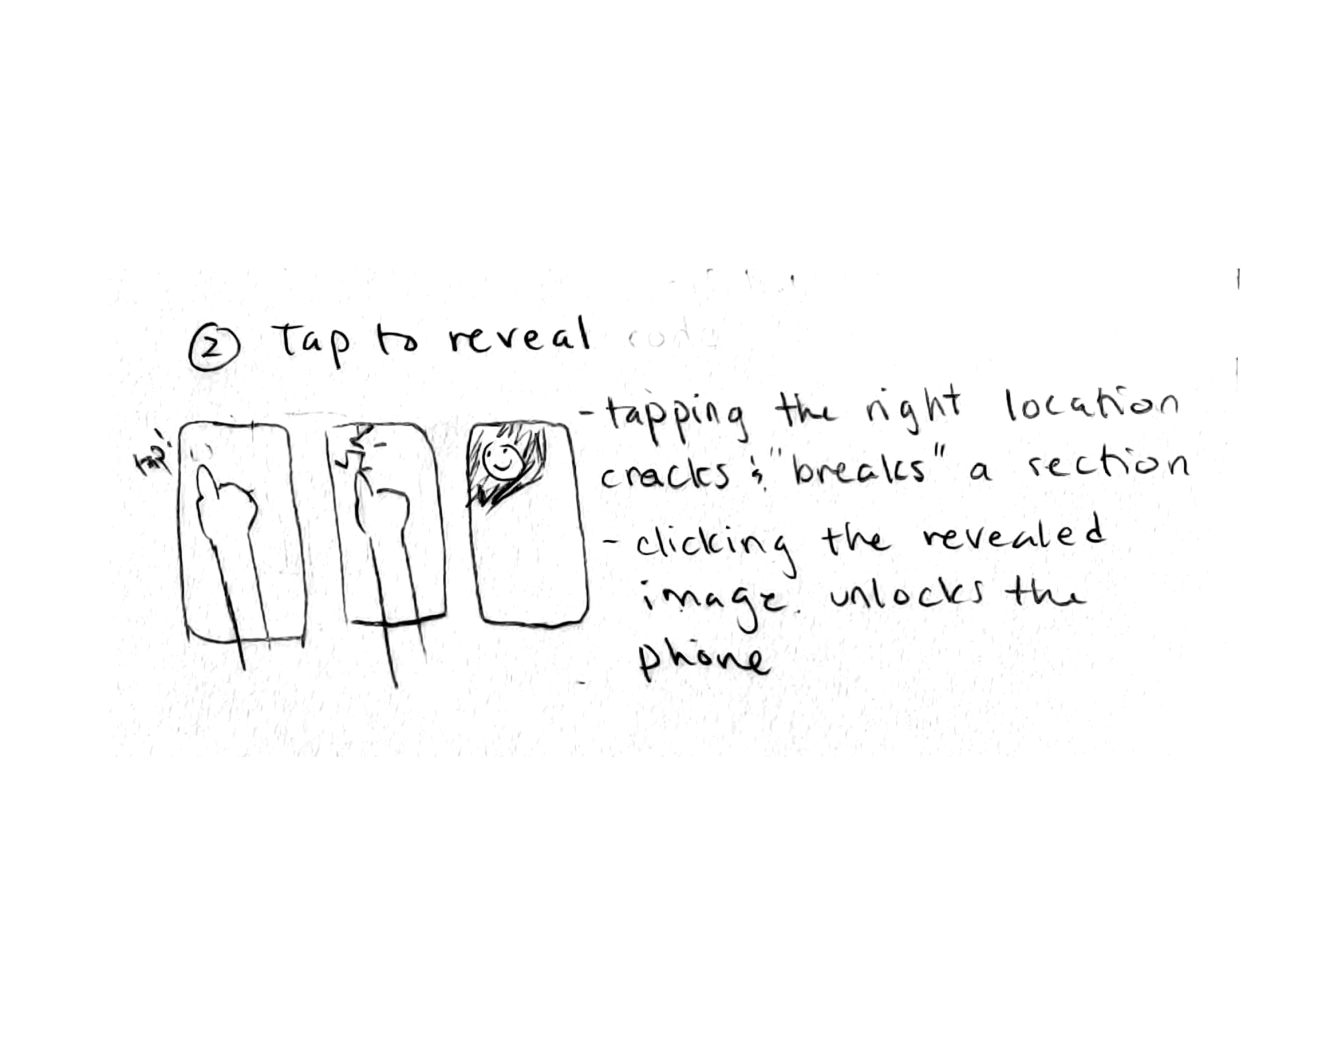 ② Tap to reveal
tap!
- tapping the right location
cracks & "breaks" a section
- clicking the revealed
image unlocks the
phone